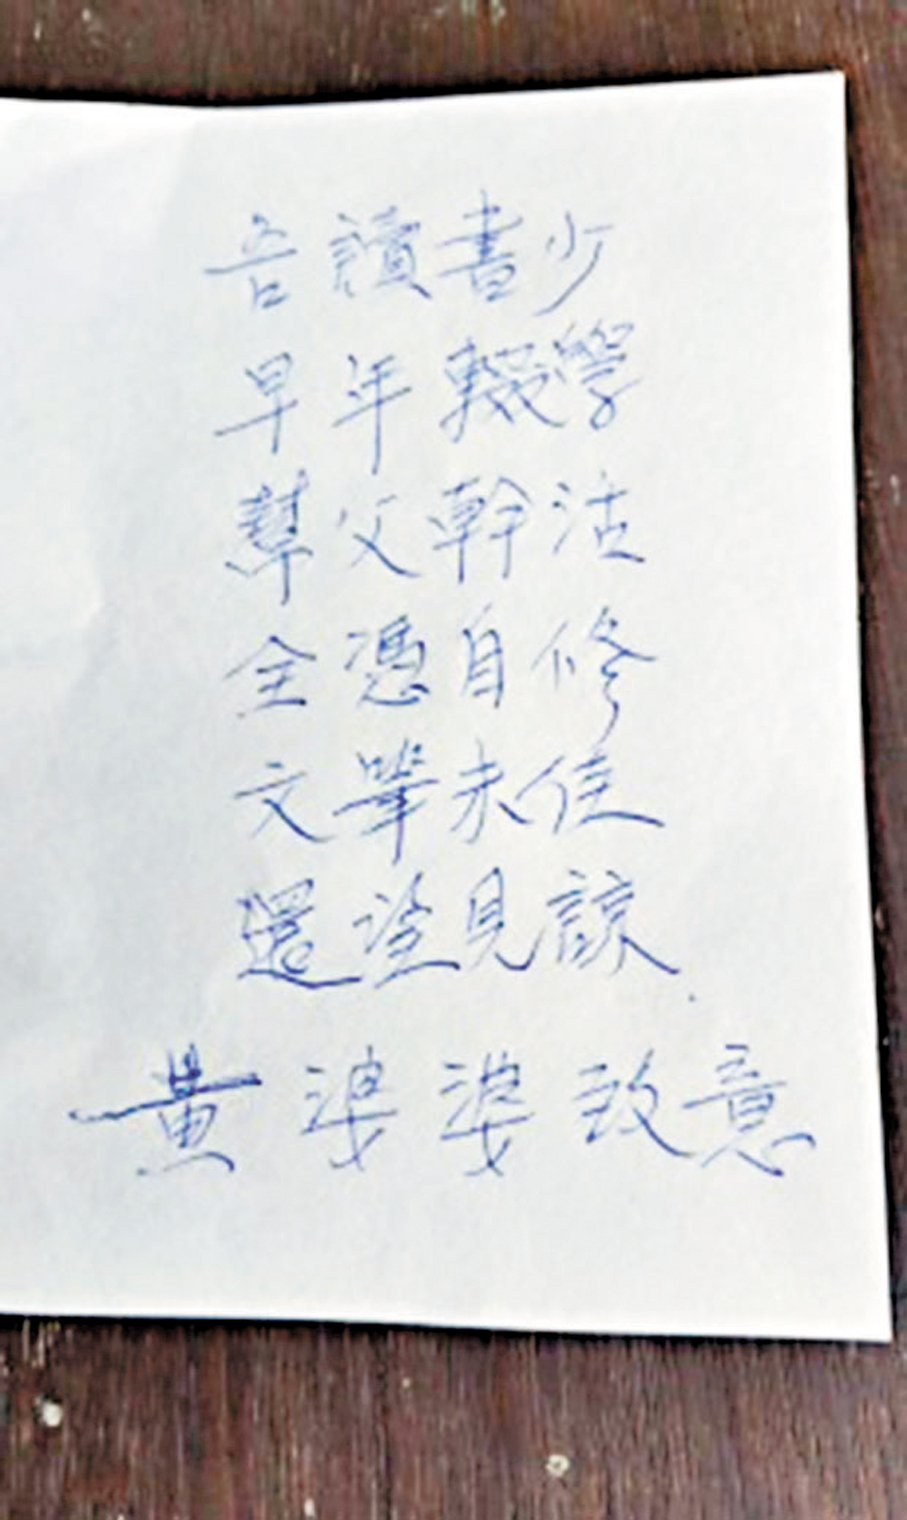 吾讀書少
早年輟學
幫父幹活
全憑自修
文筆未佳
還望見諒.
黃婆婆致意